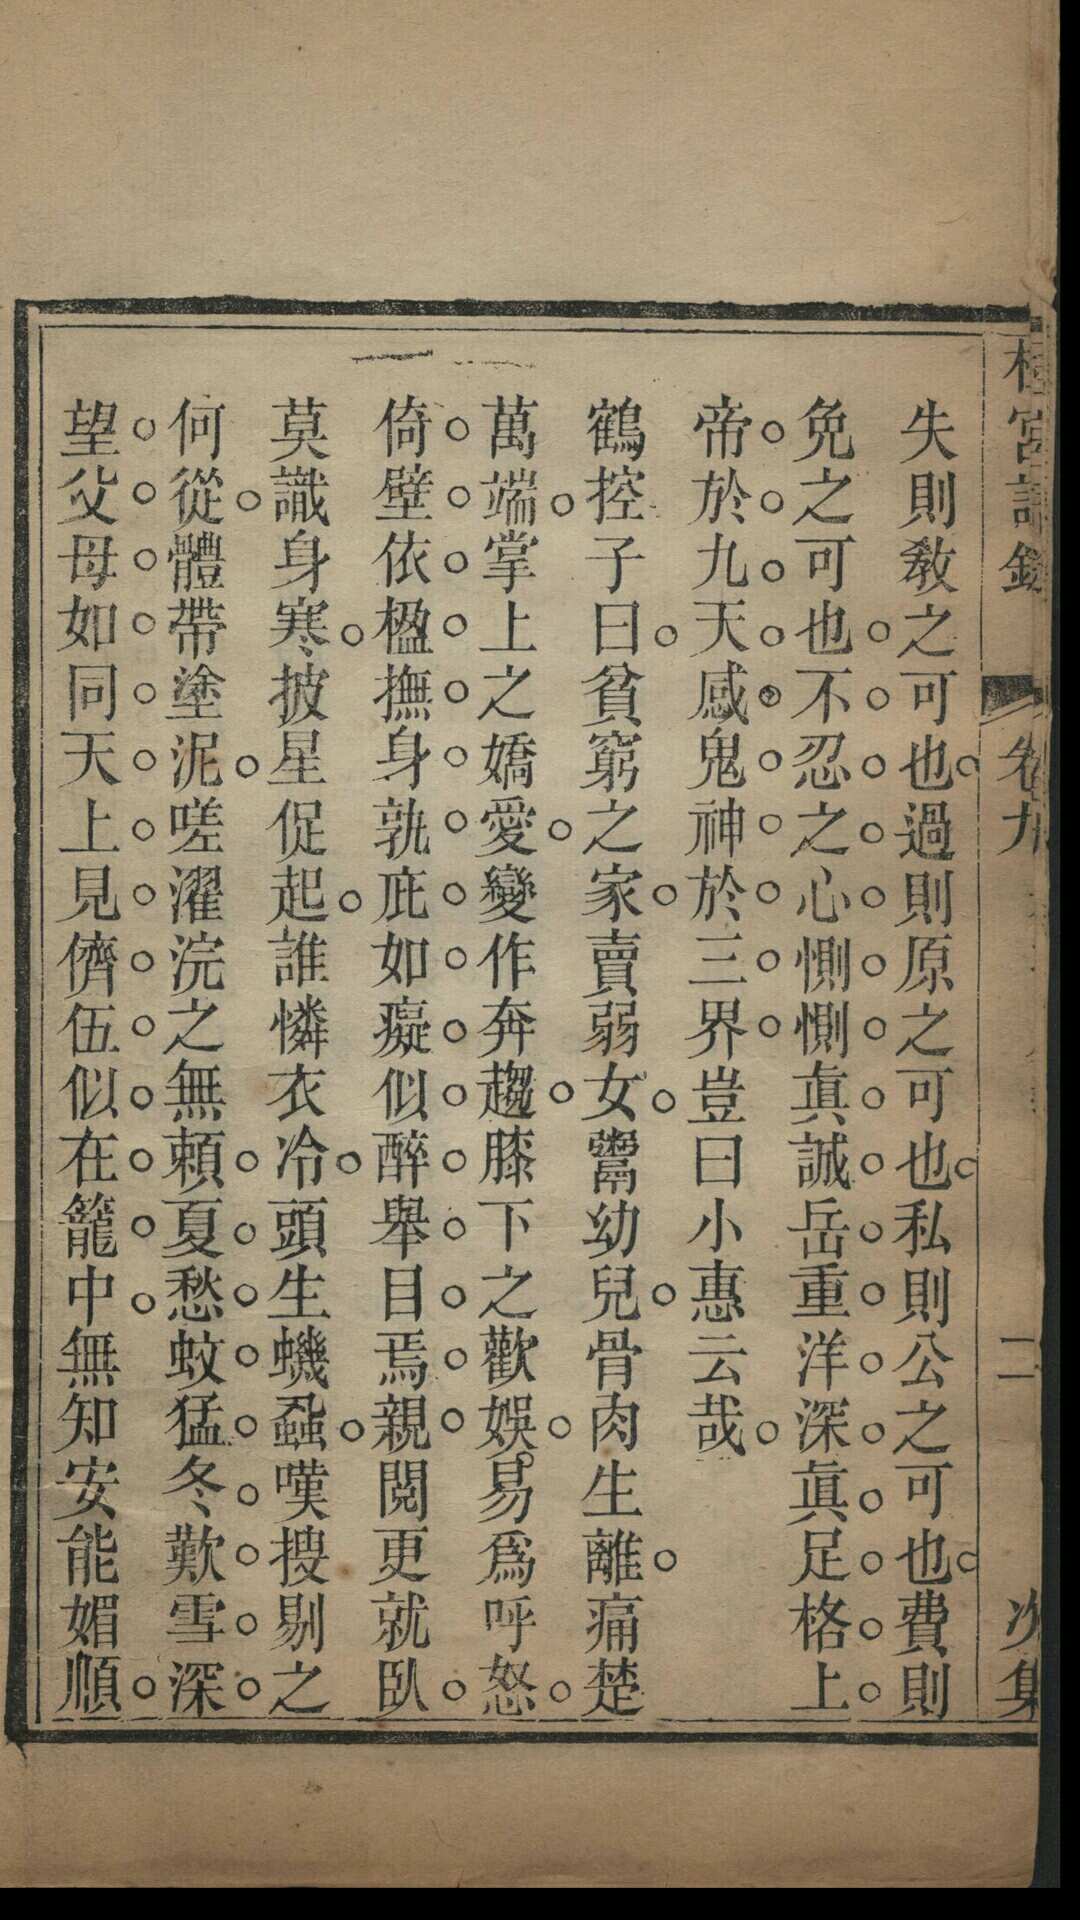 宮
卷九
二
次集
失則敎之可也過則原之可也私則公之可也費則
免之可也不忍之心惻惻眞誠岳重洋深眞足格上
帝於九天感鬼神於三界豈曰小惠云哉
鶴控子曰貧窮之家賣弱女鬻幼兒骨肉生離痛楚
萬端掌上之嬌愛變作奔趨膝下之歡娛易爲呼怒
倚壁依楹撫身孰庇如癡似醉舉目焉親閱更就臥
莫識身寒披星促起誰憐衣冷頭生蟣蝨嘆搜剔之
何從體帶塗泥嗟濯浣之無賴夏愁蚊猛冬歎雪深
望父母如同天上見儕伍似在籠中無知安能媚順